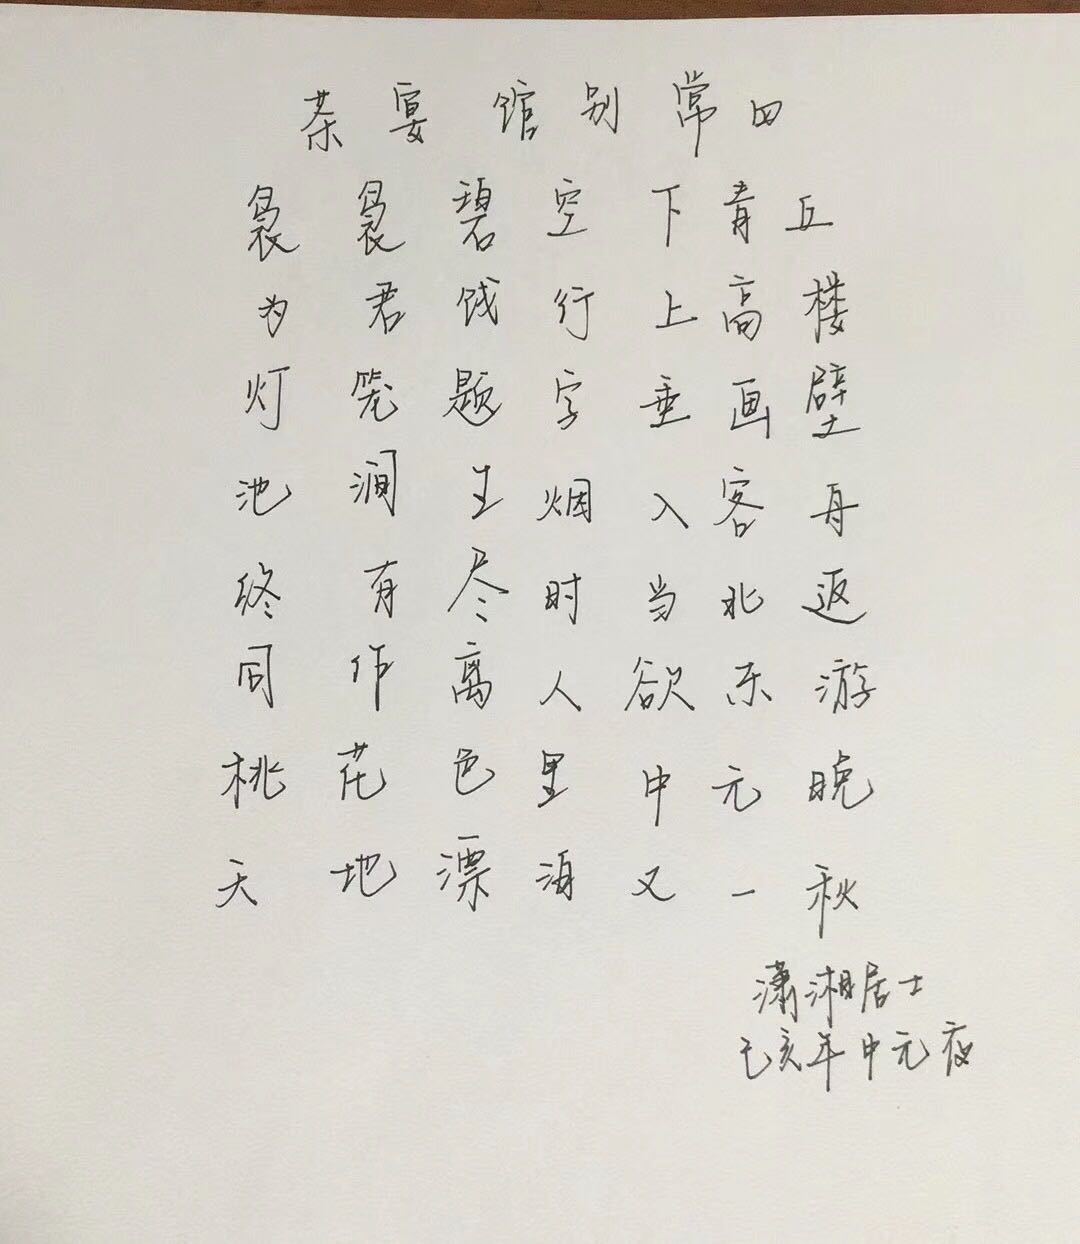 茶宴馆别常四
袅袅碧空下青丘
为君饯行上高楼
灯笼题字垂画壁
池涧生烟入客舟
终有尽时当北返
同作离人欲东游
桃花色里中元晚
天地漂泊又一秋
潇湘居士
己亥年中元夜